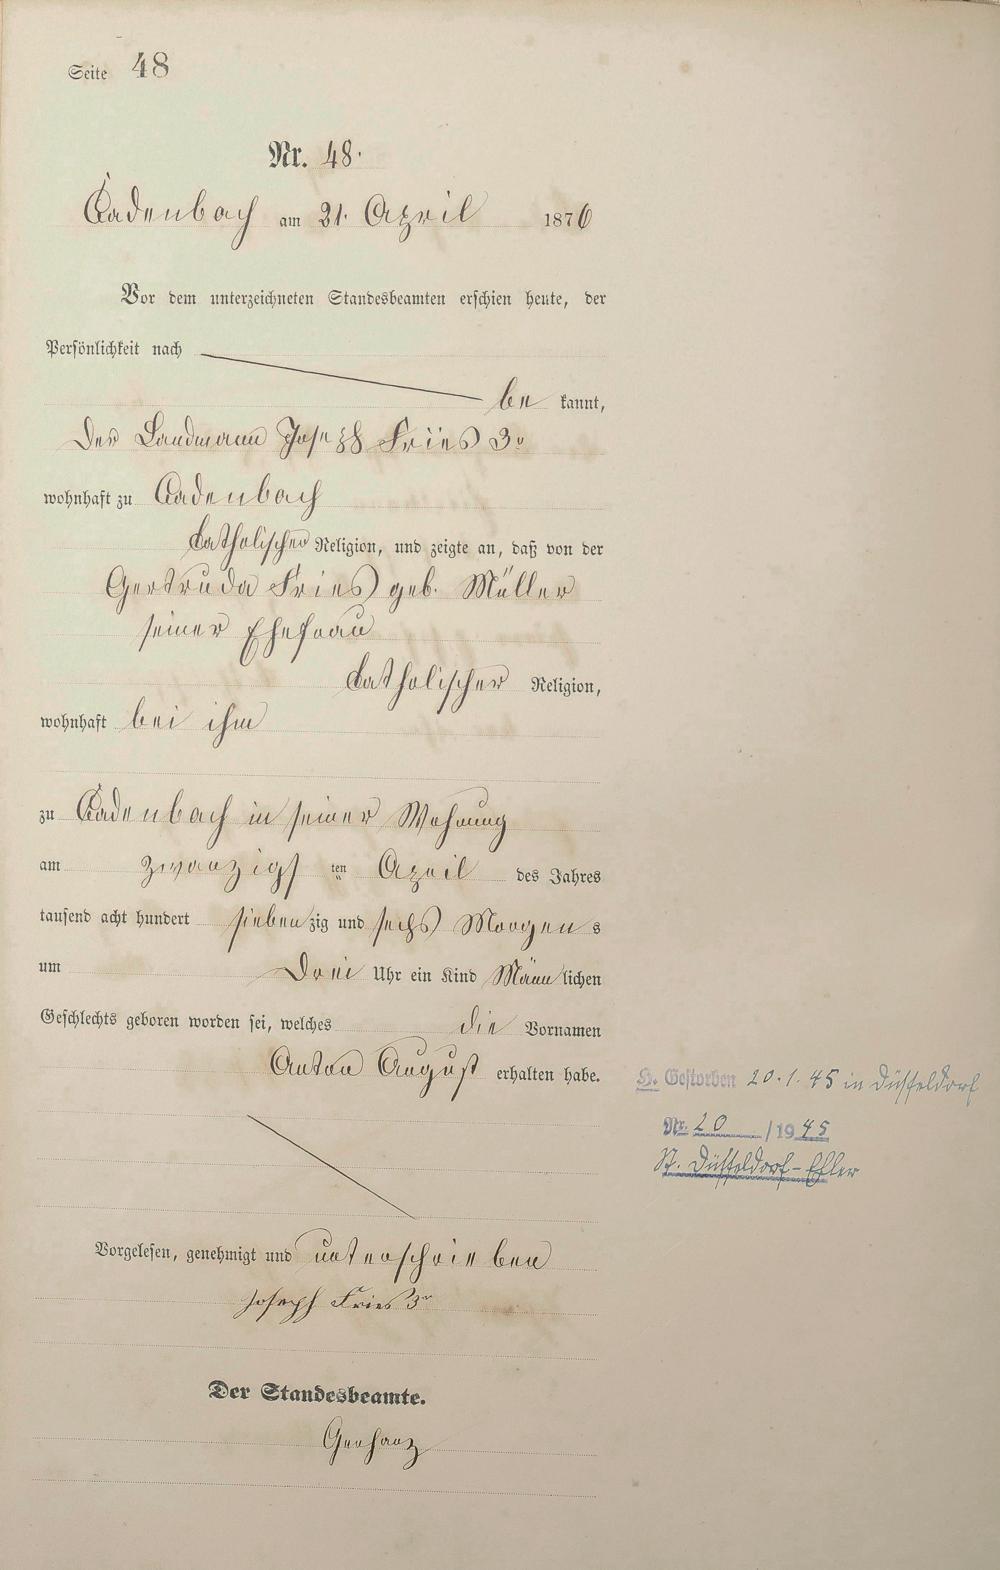 Seite 48
Nr. 48.
Cadenbach am 21. April 1876
Vor dem unterzeichneten Standesbeamten erschien heute, der
Persönlichkeit nach
be kannt,
der Landmann Joseph Fries 3r
wohnhaft zu Cadenbach
katholischer Religion, und zeigte an, daß von der
Gertruda Fries geb. Müller
seiner Ehefrau
katholischer Religion,
wohnhaft bei ihm
zu Cadenbach in seiner Wohnung
am zwanzigs ten April des Jahres
tausend acht hundert siebenzig und sechs Morgens
um Drei Uhr ein Kind Männlichen
Geschlechts geboren worden sei, welches die Vornamen
Anton August erhalten habe.
H. Gestorben 20.1.45 in Düsseldorf
Nr. 20 /1945
St. Düsseldorf-Eller
Vorgelesen, genehmigt und unterschrieben
Joseph Fries 3r
Der Standesbeamte.
Gerharz